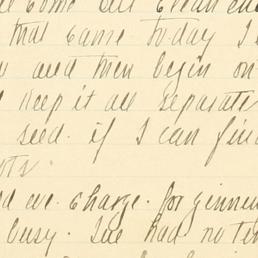 come all
that came today I
and then begin on
keep it all separate
seed. if I can find
ts.
d we charge for ginnen
busy. I've had no ti